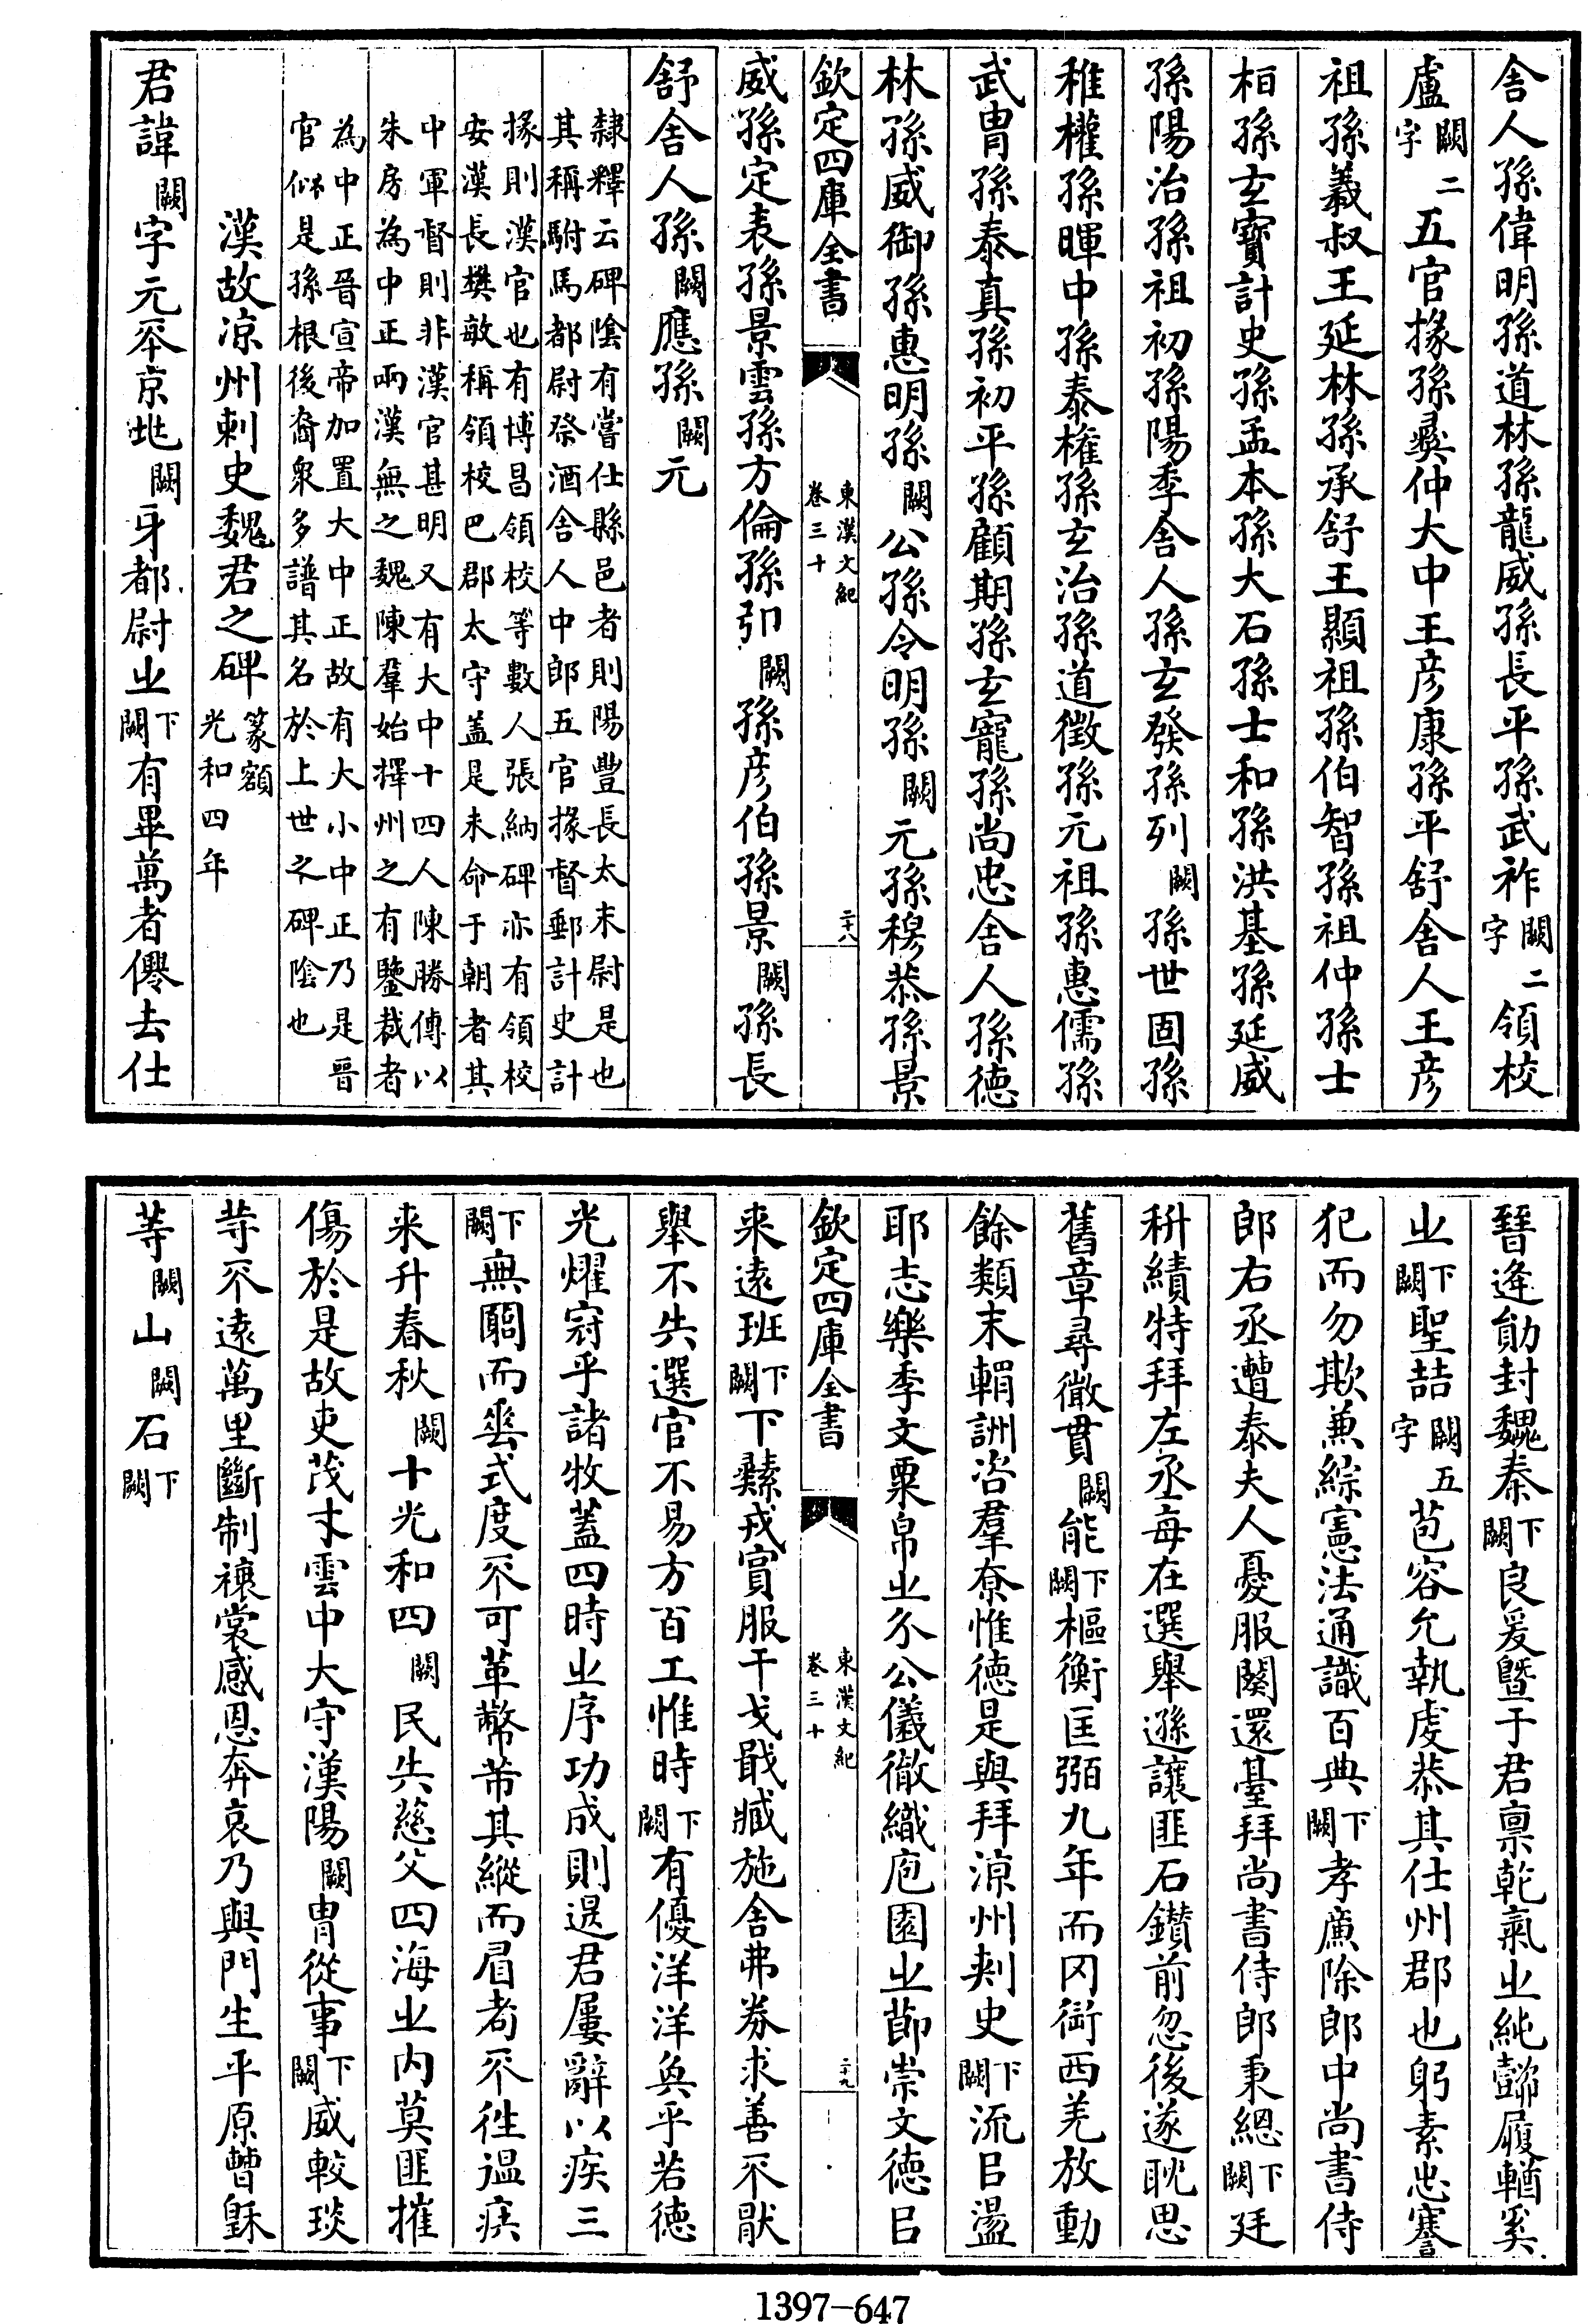 舍人孫偉明孫道林孫龍威孫長平孫武祚闕二字領校
盧闕二字五官掾孫彛仲大中王彦康孫平舒舍人王彦
祖孫義叔王延林孫承舒王顯祖孫伯智孫祖仲孫士
栢孫玄寳計史孫孟本孫大石孫士和孫洪基孫延威
孫陽治孫祖初孫陽季舍人孫玄發孫列闕孫世固孫
稚權孫暉中孫泰權孫玄治孫道徴孫元祖孫惠儒孫
武胄孫泰真孫初平孫顧期孫玄寵孫尚忠舍人孫徳
林孫威御孫惠明孫闕公孫令明孫闕元孫穆恭孫景
欽定四庫全書
東漢文紀
卷三十
二十八
威孫定表孫景雲孫方倫孫㓞闕孫彦伯孫景闕孫長
舒舍人孫闕應孫闕元
隸釋云碑隂有嘗仕縣邑者則陽豐長太末尉是也
其稱駙馬都尉祭酒舍人中郎五官掾督郵計史計
掾則漢官也有博昌領校等數人張納碑亦有領校
安漢長樊敏稱領校巴郡太守蓋是未命于朝者其
中軍督則非漢官甚明又有大中十四人陳勝傳以
朱房為中正兩漢無之魏陳羣始擇州之有鑒裁者
為中正晉宣帝加置大中正故有大小中正乃是晉
官似是孫根後裔衆多譜其名於上世之碑隂也
漢故凉州刺史魏君之碑篆額光和四年
君諱闕字元丕京兆闕牙都尉㞢下闕有畢萬者僊去仕
晉逄勛封魏秦下闕良爰曁于君禀乾氣㞢純懿履輶奚
㞢下闕聖喆闕五字苞容允執虔恭其仕州郡也躬素忠謇
犯而勿欺兼綜憲法通識百典下闕孝㢘除郎中尚書侍
郎右丞遭泰夫人憂服闋還臺拜尚書侍郎秉緫下闕廷
秨績特拜左丞每在選舉遜讓匪石鑚前忽後遂耽思
舊章尋㣲貫闕能下闕樞衡匡弼九年而冈衙西羌放動
餘類末輯詶咨羣寮惟徳是與拜涼州刾史下闕流㠯盪
耶志樂季文粟帛㞢分公儀徹織庖園㞢節崇文徳㠯
欽定四庫全書
東漢文紀
卷三十
二十九
来遠班下闕下㸔戎賔服干戈戢臧施舍弗券求善不猒
舉不失選官不易方百工惟時下闕有優洋洋奐乎若徳
光燿冠乎諸牧蓋四時㞢序功成則退君屢辭以疾三
下闕無闗而垂式度不可革幣芾其縱而眉耇不徃遥疾
来升春秋闕十光和四闕民失慈父四海㞢内莫匪摧
傷於是故吏茂才雲中大守漢陽闕胄從事下闕威較琰
䓁不遠萬里斷制禳裳感恩奔哀乃與門生平原曹穌
䓁闕山闕石下闕
1397—647